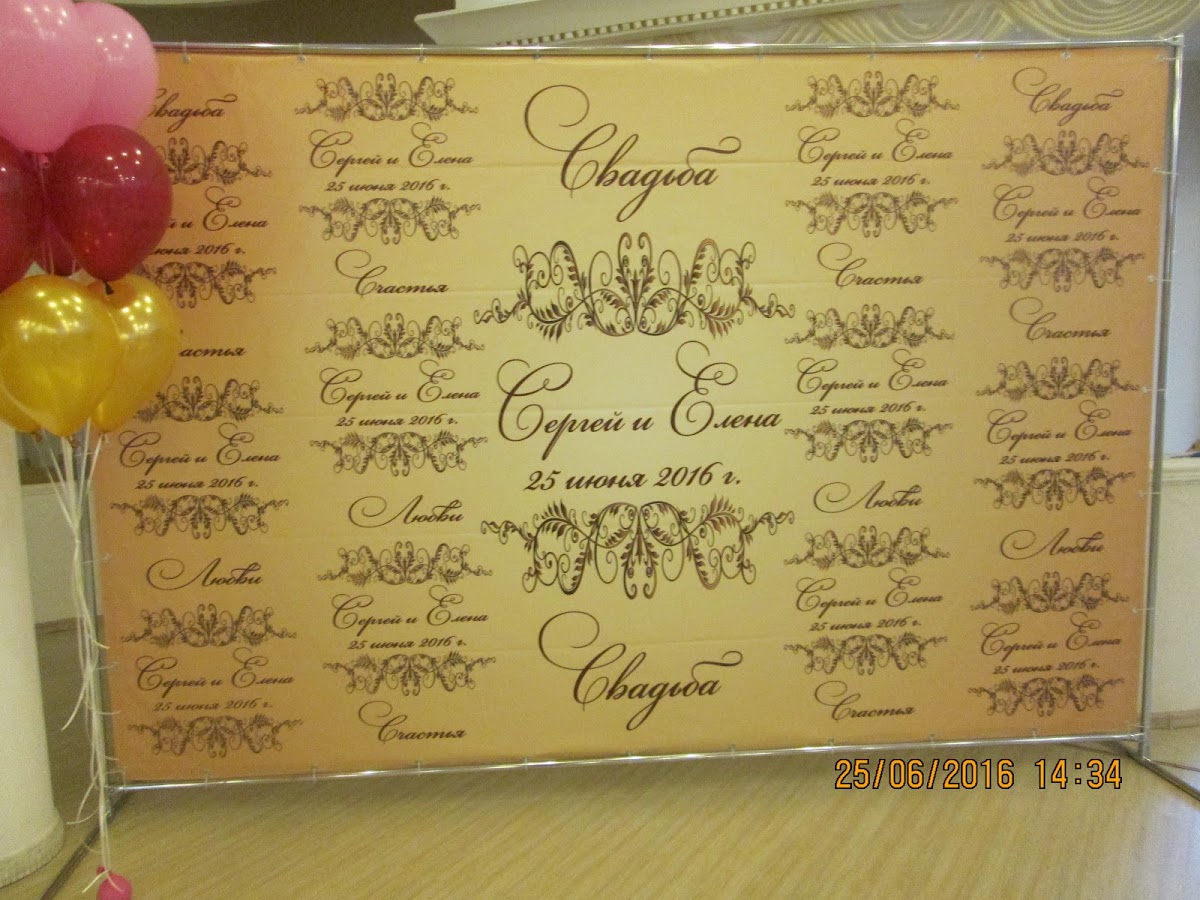 Свадьба
Сергей и Елена
25 июня 2016 г.
Счастья
Сергей и Елена
25 июня 2016 г.
Любви
Сергей и Елена
25 июня 2016 г.
Сергей и Елена
25 июня 2016 г.
Счастья
Сергей и Елена
25 июня 2016 г.
Любви
Сергей и Елена
25 июня 2016 г.
Счастья
Свадьба
Сергей и Елена
25 июня 2016 г.
Свадьба
Сергей и Елена
25 июня 2016 г.
Счастья
Сергей и Елена
25 июня 2016 г.
Любви
Сергей и Елена
25 июня 2016 г.
Счастья
Свадьба
Сергей и Елена
25 июня 2016 г.
Счастья
Сергей и Елена
25 июня 2016 г.
Любви
Сергей и Елена
25 июня 2016 г.
25/06/2016 14:34